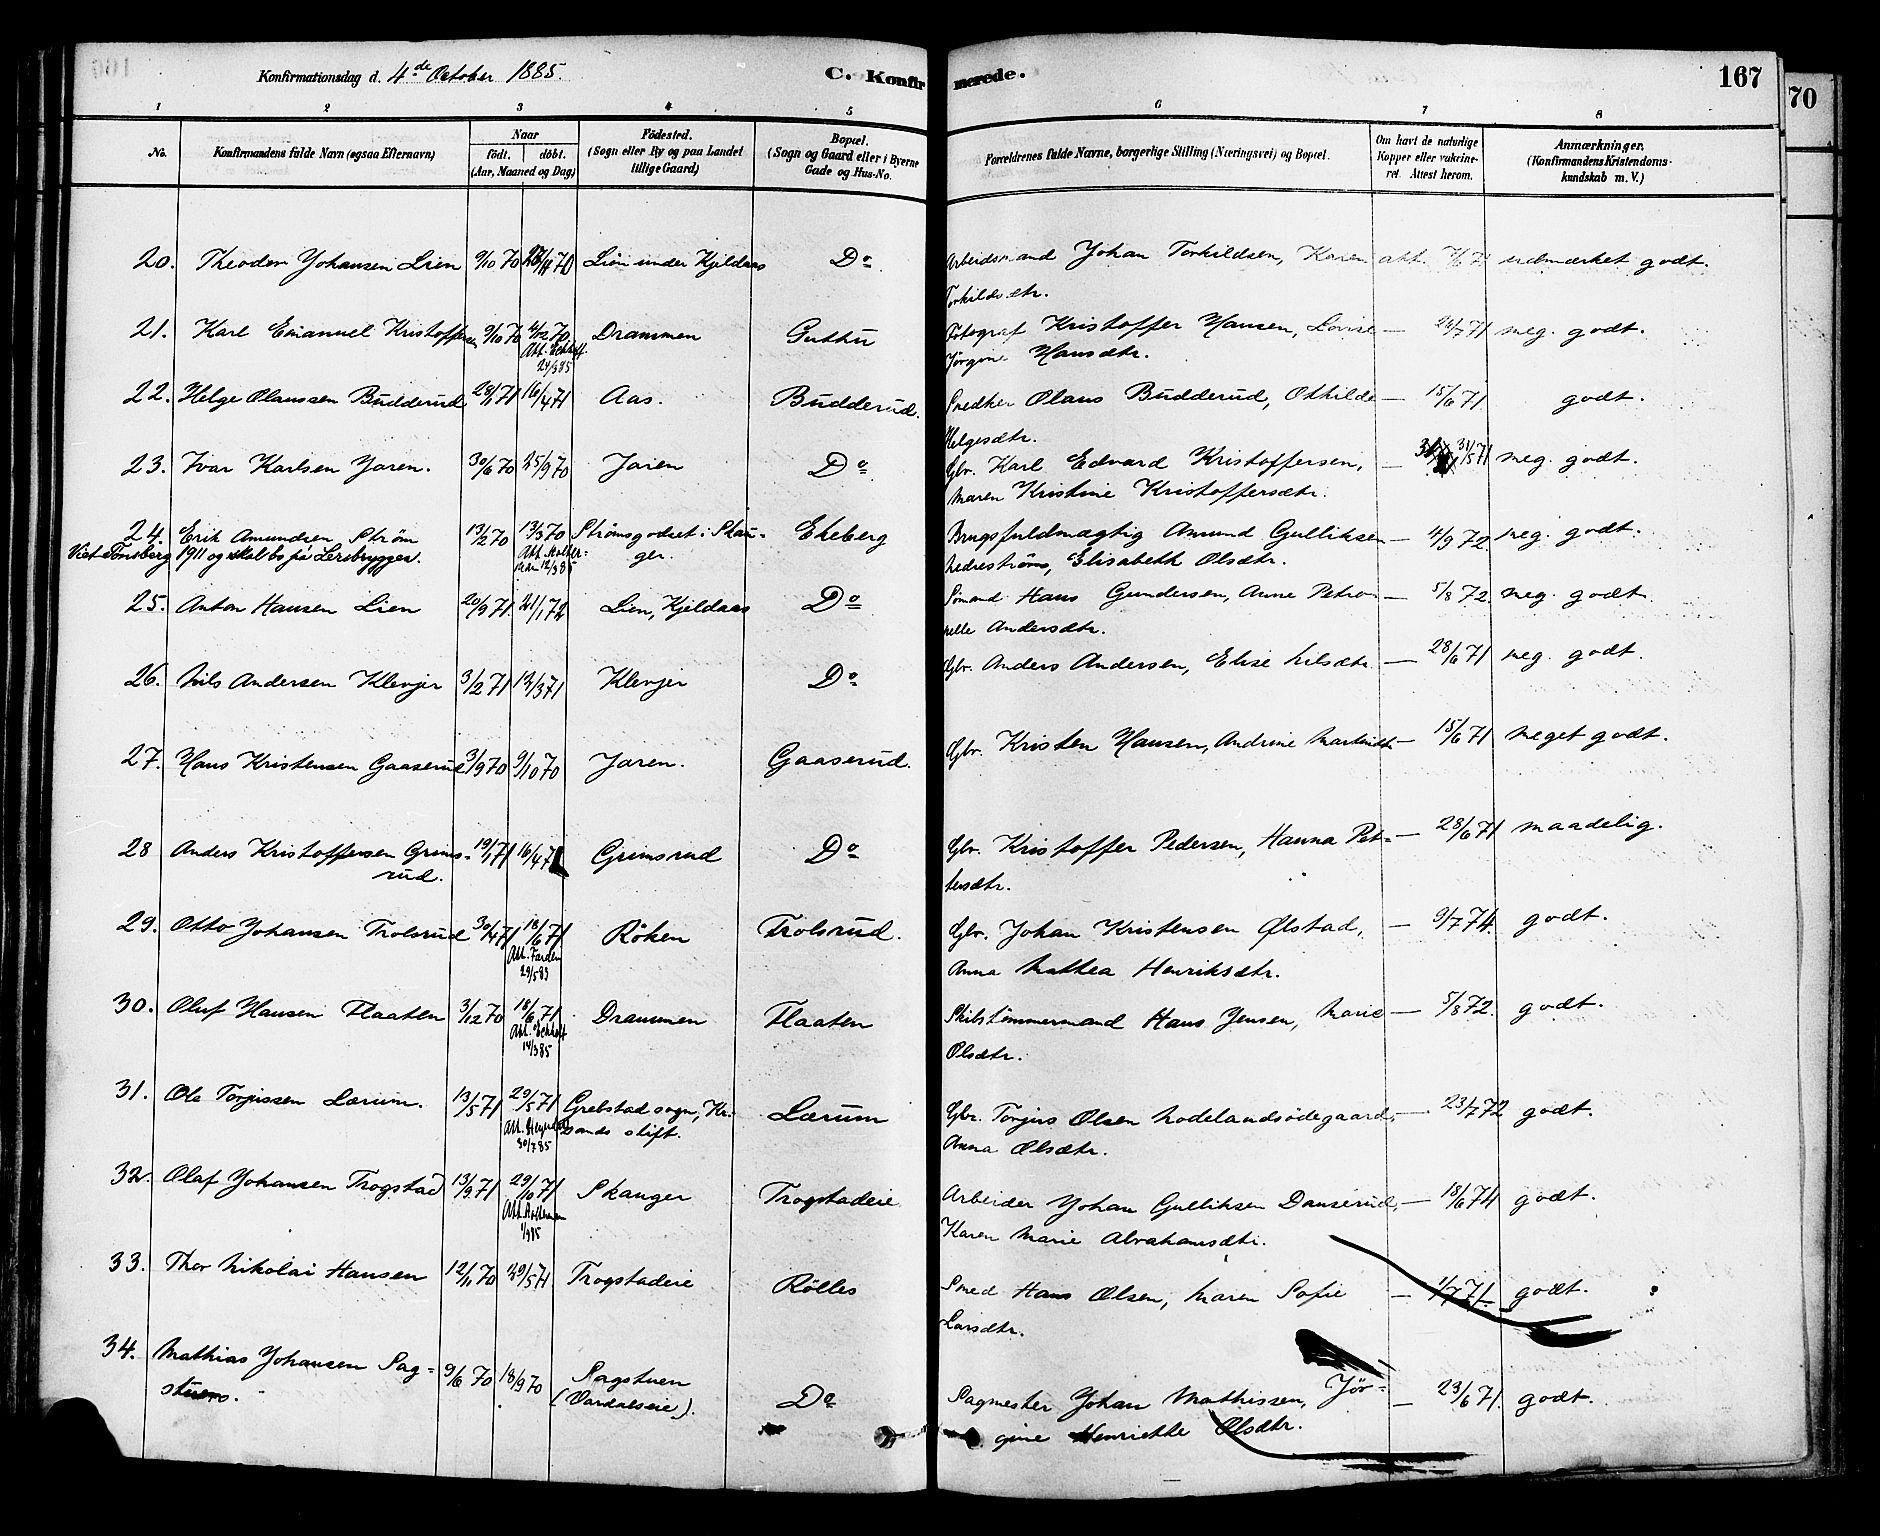 Konfirmationsdag d. 4de October 1885.
C. Konfirmerede.
167
70
1 2 3 4 5 6 7 8
No.
Konfirmandens fulde Navn (ogsaa Efternavn)
Naar
født. døbt.
(Aar, Maaned og Dag)
Födested.
(Sogn eller By og paa Landet
tillige Gaard)
Bopæl.
(Sogn og Gaard eller i Byerne
Gade og Hus-No.
Forældrenes fulde Navne, borgerlige Stilling (Næringsvei) og Bopæl.
Om havt de naturlige
Kopper eller vakcine-
ret. Attest herom.
Anmærkninger.
(Konfirmandens Kristendoms-
kundskab m. V.)
20. Theodor Johansen Lien 9/10 70 27/11 70 Lien under Kjeldaas Do Arbeidsmand Johan Torkildsen, Karen att. 7/6 71 udmærket godt.
Torkildsdtr.
21. Karl Emanuel Kristoffersen 9/10 70 4/12 70 Drammen Guttu Fotograf Kristoffer Hansen, Lovise — 24/7 71 meg. godt.
24/3 85 Jørgine Hansdtr.
22. Helge Olaussen Budderud 28/1 71 16/4 71 Aas. Budderud. Snedker Olaus Budderud, Othilde — 15/6 71 godt.
Helgesdtr.
23. Ivar Karlsen Jaren. 30/6 70 25/9 70 Jaren Do Gbr. Karl Edvard Kristoffersen, — 31/5 71 meg. godt.
Maren Kristine Kristoffersdtr.
24. Erik Amundsen Strøm 13/2 70 13/3 70 Strømsgodset i Skau- Ekeberg Brugsfuldmægtig Amund Gulliksen — 4/9 72. meg. godt.
Viet Tönsberg 1911 og skal bo på Lersbryggen. Att. Holter-
man 12/3 85 ger. Nedreström, Elisabeth Olsdtr.
25. Anton Hansen Lien 20/9 71. 21/1 72 Lien, Kjeldaas Do Sömand Hans Gundersen, Anne Petro- — 5/8 72. meg. godt.
nelle Andersdtr.
26. Nils Andersen Klevjer 3/2 71 12/3 71 Klevjer Do Gbr. Anders Andersen, Elise Nilsdtr. — 28/6 71 meg. godt.
27. Hans Kristensen Gaaserud 3/9 70 9/10 70 Jaren. Gaaserud. Gbr. Kristen Hansen, Andrine Martinsdtr. — 15/6 71 meget godt.
28 Anders Kristoffersen Grims- 19/1 71 16/4 71 Grimsrud Do Gbr. Kristoffer Pedersen, Hanna Pet- — 28/6 71 maadelig.
rud. tersdtr.
29. Otto Johansen Trolsrud 30/4 71 18/6 71 Röken Trolsrud. Gbr. Johan Kristensen Ølstad, — 9/7 74. godt.
Att. Farden
29/5 83 Anna Mathea Henriksdtr.
30. Oluf Hansen Flaaten 3/12 70 18/6 71 Drammen Flaaten Skibstömmermand Hans Jensen, Marie — 5/8 72. godt.
14/3 85 Olsdtr.
31. Ole Torjussen Lærum. 13/5 71 29/5 71 Grebstad sogn, Kr. Lærum Gbr. Torjus Olsen Nodelandsødegaard, — 23/7 72 godt.
30/7 85 sands stift. Anna Olsdtr.
32. Olaf Johansen Trogstad 13/9 71 29/10 71 Skauger Trogstadeie Arbeider Johan Gulliksen Danserud, — 18/6 74 godt.
Att. Holterman
1/9 85 Karen Marie Abrahamsdtr.
33. Thor Nikolai Hansen 12/11 70 29/5 71 Trogstadeie Rölles Smed Hans Olsen, Maren Sofie — 1/7 71. godt.
Larsdtr.
34. Mathias Johansen Sag- 9/6 70 18/9 70 Sagstuen Do Sagmester Johan Mathissen, Jör- — 23/6 71. godt.
stuen. (Vardalseie). gine Henriette Olsdtr.